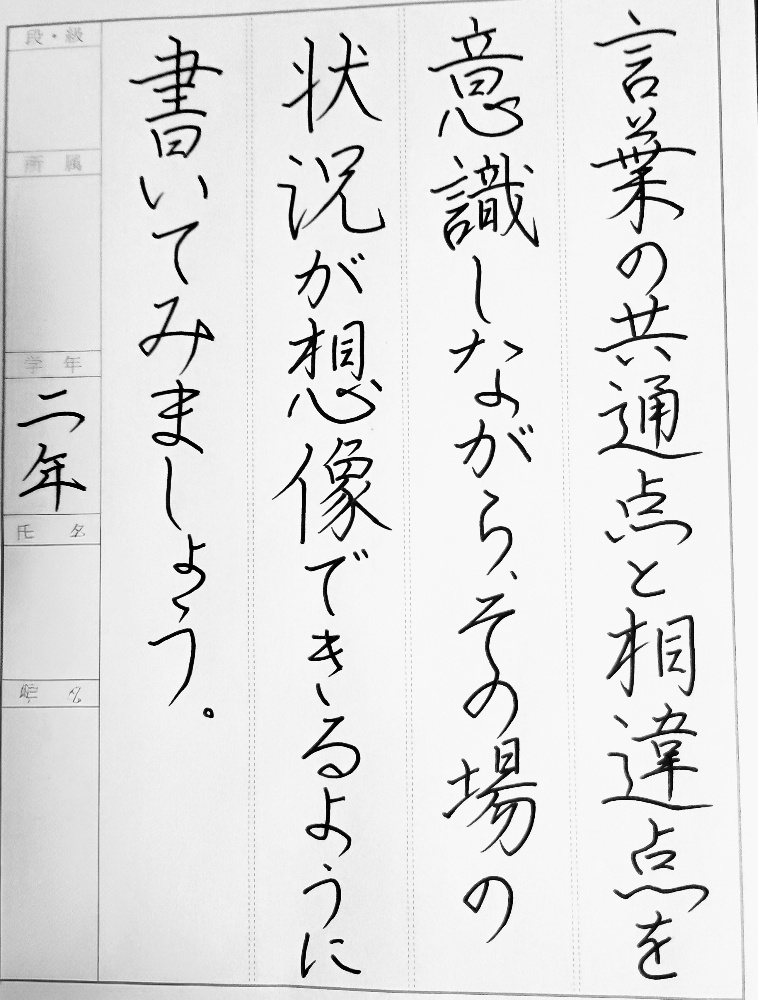 言葉の共通点と相違点を
意識しながら、その場の
状況が想像できるように
書いてみましょう。
段・級
所属
学年
二年
氏名
雅名